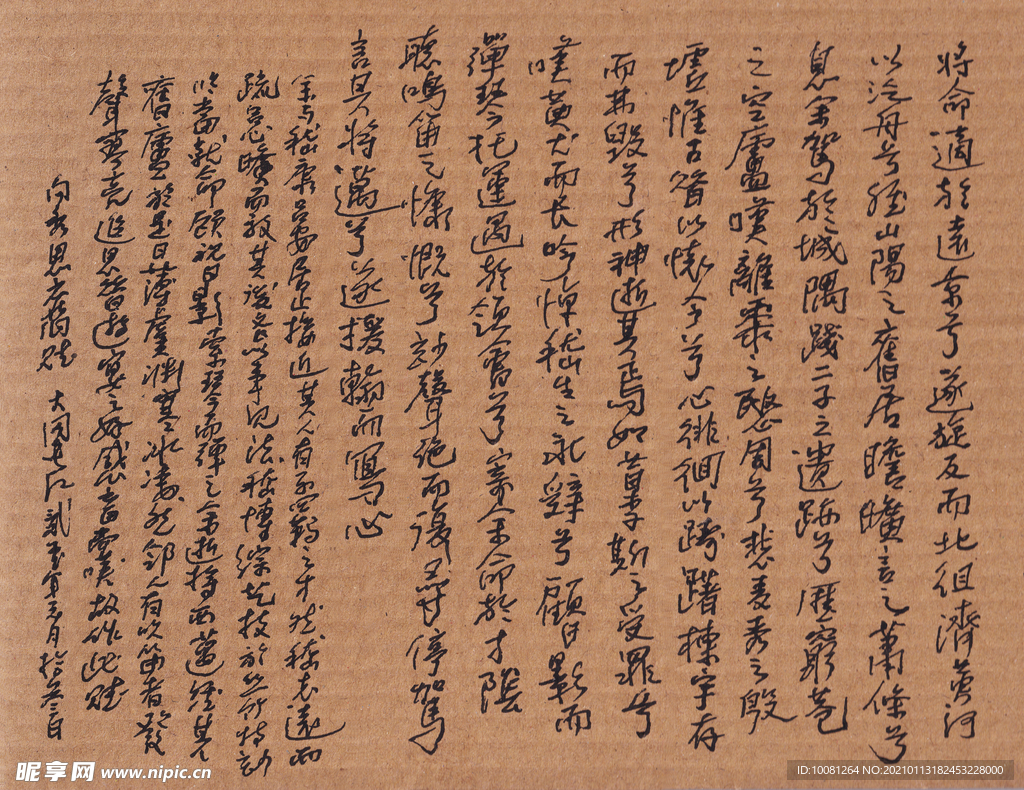 将命適於遠京兮遂旋反而北徂濟黄河
以汎舟兮經山陽之舊居瞻曠言之蕭條兮
息余駕於城隅踐二子之遺跡兮歷窮巷
之空廬嘆離黍之愍周兮悲麦秀之殷
墟惟古昔以懷今兮心徘徊以躊躇棟宇存
而弗毁兮形神逝其焉如昔李斯之受罪兮
嘆黄犬而长吟悼嵇生之永辞兮顧日影而
彈琴托運遇於領會兮寄余命於寸陰
聽鳴笛之慷慨兮妙聲絶而復尋停駕
言其將邁兮遂援翰而寫心
余与嵇康吕安居止接近其人有不羁之才然嵇志遠而
疏吕曠而放其後各以事見法嵇博綜技於丝竹特妙
临當就命顧視日影索琴而彈之余逝将西邁經其
舊廬於是日薄虞渊寒冰凄然邻人有吹笛者發
聲寥亮追思昔遊宴之好感音而嘆故作此赋
向秀思舊赋 大同
昵享网 www.nipic.cn
ID:10081264 NO:20210113182453228000